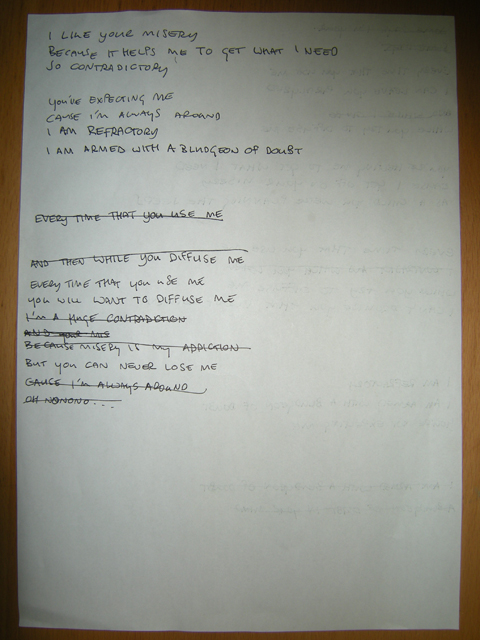 I LIKE YOUR MISERY
BECAUSE IT HELPS ME TO GET WHAT I NEED
SO CONTRADICTORY
YOU'VE EXPECTING ME
CAUSE I'M ALWAYS AROUND
I AM REFRACTORY
I AM ARMED WITH A BLUDGEON OF DOUBT
EVERY TIME THAT YOU USE ME
AND THEN WHILE YOU DIFFUSE ME
EVERY TIME THAT YOU USE ME
YOU WILL WANT TO DIFFUSE ME
I'M A HUGE CONTRADICTION
AND YOUR
BECAUSE MISERY IS MY ADDICTION
BUT YOU CAN NEVER LOSE ME
CAUSE I'M ALWAYS AROUND
OH NONONO...